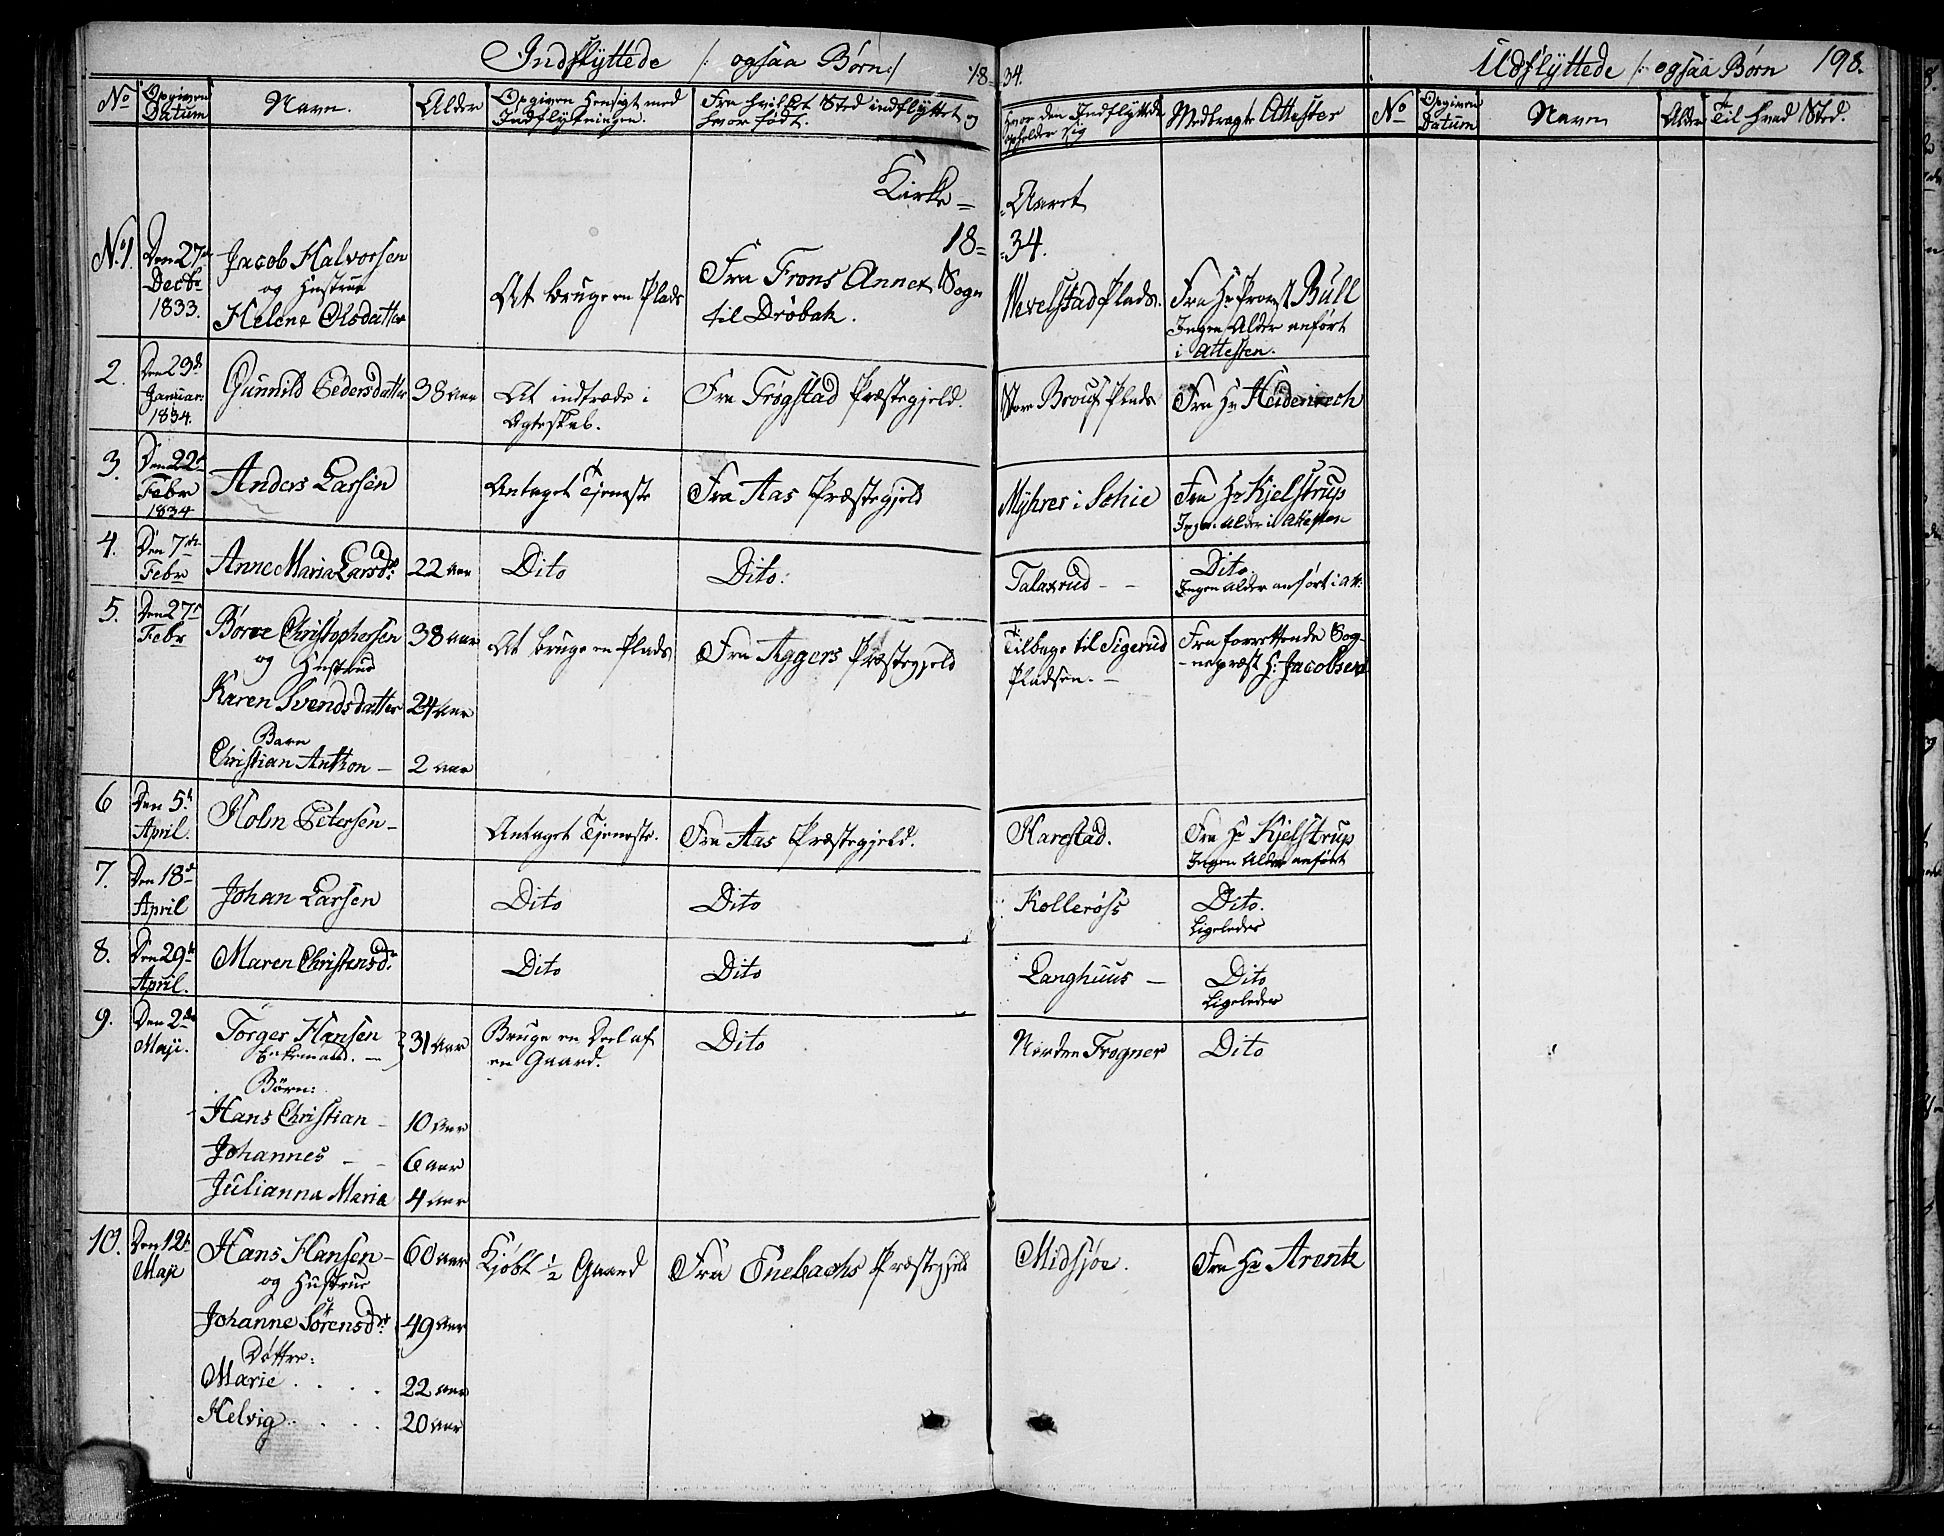 Indflyttede /: ogsaa Børn :/ 18-34.
Udflyttede /: ogsaa Børn 198.
No Opgiven Datum Navn. Alder Opgiven Hensigt med Indflytningen. Fra hvilket Sted indflyttet og hvor født. Hvor den Indflyttede opholder sig Medbragte Attester No Opgiven Datum Navn Alder Til hvad Sted.
Kirke- Aaret
18- 34.
No 1. Den 27de Decbr 1833. Jacob Halvorsen At bruge en Plads Fra Frons Annex Sogn til Drøbak. Wevelstad Plads. Fra Hr Provst Bull
og Hustrue Ingen Alder anført
Helene Olsdatter i Attesten.
2. Den 29de Januar 1834. Gunnild Pedersdatter 38 Aar At indtræde i Ægteskab. Fra Trøgstad Præstegjeld. Store Plads Fra Hr Heidenrech
3. Den 22de Febr 1834 Anders Larsen Antaget Tjeneste Fra Aas Præstegjeld Myhrer i Schie Fra Hr Kjelstrup
Ingen Alder i Attesten
4. Den 7de Febr Anne Maria Larsdr: 22 Aar Dito Dito: Talaxrud - - Dito.
Ingen Alder anført i Att:
5. Den 27de Febr Børre Christophersen 38 Aar At bruge en Plads Fra Aggers Præstegjeld Tilbage til Sigerud Pladsen. - Fra forrettende Sognepræst H: Jacobsen
og Hustrue
Karen Svendsdatter 24 Aar
Barn
Christian Anthon - 2 Aar
6 Den 5te April. Holm Petersen - Antaget Tjeneste. Fra Aas Præstegjeld. Harestad. Fra Hr Kjelstrup
Ingen Alder anført
7. Den 18de April Johan Larsen Dito Dito Kollerøss Dito.
Ligeledes
8. Den 29de April. Maren Christensdr. Dito Dito Langhuus - Dito
Ligeledes
9. Den 2den Maji. Torger Hansen 31 Aar Bruge en Deel af en Gaard. Dito Norden Frogner Dito
Enkemand. -
Børn:
Hans Christian - 10 Aar
Johannes - - 6 Aar
Julianna Maria 4 Aar
10. Den 12te Maji Hans Hansen - 60 Aar Kjøbt ½ Gaard Fra Enebachs Præstegjeld Midsjøe. Fra Hr Arentz
og Hustrue
Johanne Sørensdr: 49 Aar
Døttre:
Marie . . . . 22 Aar
Helvig . . . . 20 Aar